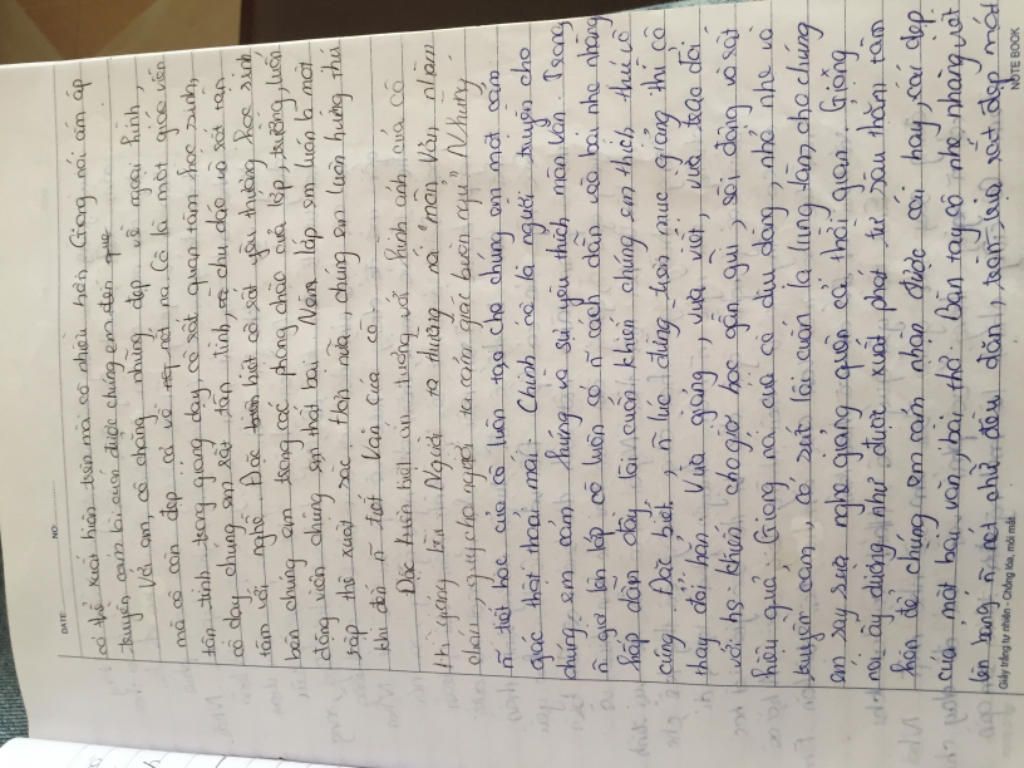 DATE
NO.
có thể xuất hiện trên mà có nhiều bên. Giọng nói ấm áp
truyền cảm lôi cuốn được chúng em đến
Với em, cô chẳng những đẹp về ngoại hình,
mà cô còn đẹp cả về nết na. Cô là một giáo viên
tận tình trong giảng dạy, cô rất quan tâm học sinh,
cô dạy chúng em rất tận tình, chu đáo và rất tận
tâm với nghề. Đặc biệt cô rất yêu thương học sinh
bọn chúng em trong các phong trào của lớp, trường, luôn
động viên chúng em thất bại. Nếu lớp em luôn là một
tập thể xuất sắc. Hơn nữa, chúng em luôn hứng thú
khi đến ~ tiết Văn của cô.
Đặc biệt ấn tượng với hình ảnh của cô
khi giảng bài. Người ta thường nói "môn Văn nhàm
chán, gây cho người ta cảm giác buồn ngủ". Nhưng
~ tiết học của cô luôn tạo cho chúng em một cảm
giác thật thoải mái. Chính cô là người truyền cho
chúng em cảm hứng và sự yêu thích môn Văn. Trong
~ giờ lên lớp cô luôn có ~ cách dẫn vào bài nhẹ nhàng
hấp dẫn đầy lôi cuốn khiến chúng em thích thú vô
cùng. Đặc biệt, ~ lúc đứng trên mục giảng thì cô
thay đổi hẳn. Vừa giảng, vừa viết, vừa trao đổi
với hs khiến cho giờ học gần gũi, sôi động và rất
hiệu quả. Giọng nói của cô dịu dàng, nhỏ nhẹ và
truyền cảm, có sức lôi cuốn lạ lùng làm cho chúng
em say sưa nghe giảng quên cả thời gian. Giọng
nói ấy dường như được xuất phát từ sâu thẳm tâm
hồn để chúng em cảm nhận được cái hay, cái đẹp
của một bài văn, bài thơ. Bàn tay cô nhẹ nhàng viết
lên bảng ~ nét chữ đều đặn, rất đẹp một
Giấy trắng tự nhiên - Chống lóa, mỏi mắt.
NOTE BOOK